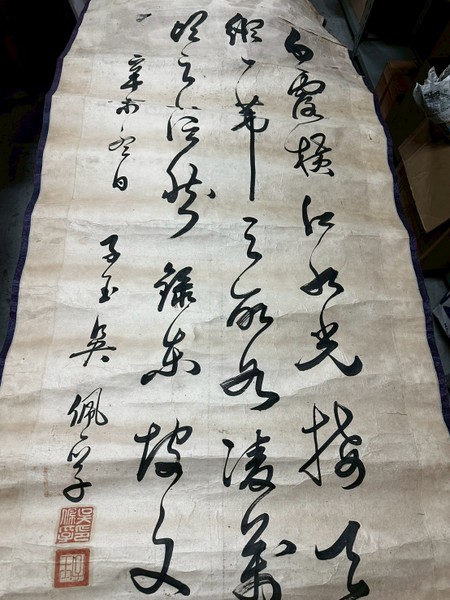 白露橫江水光接天
縱一葦之所如凌萬
頃之茫然錄東坡文
辛未冬日
子玉吳佩孚
吳佩孚印
子玉